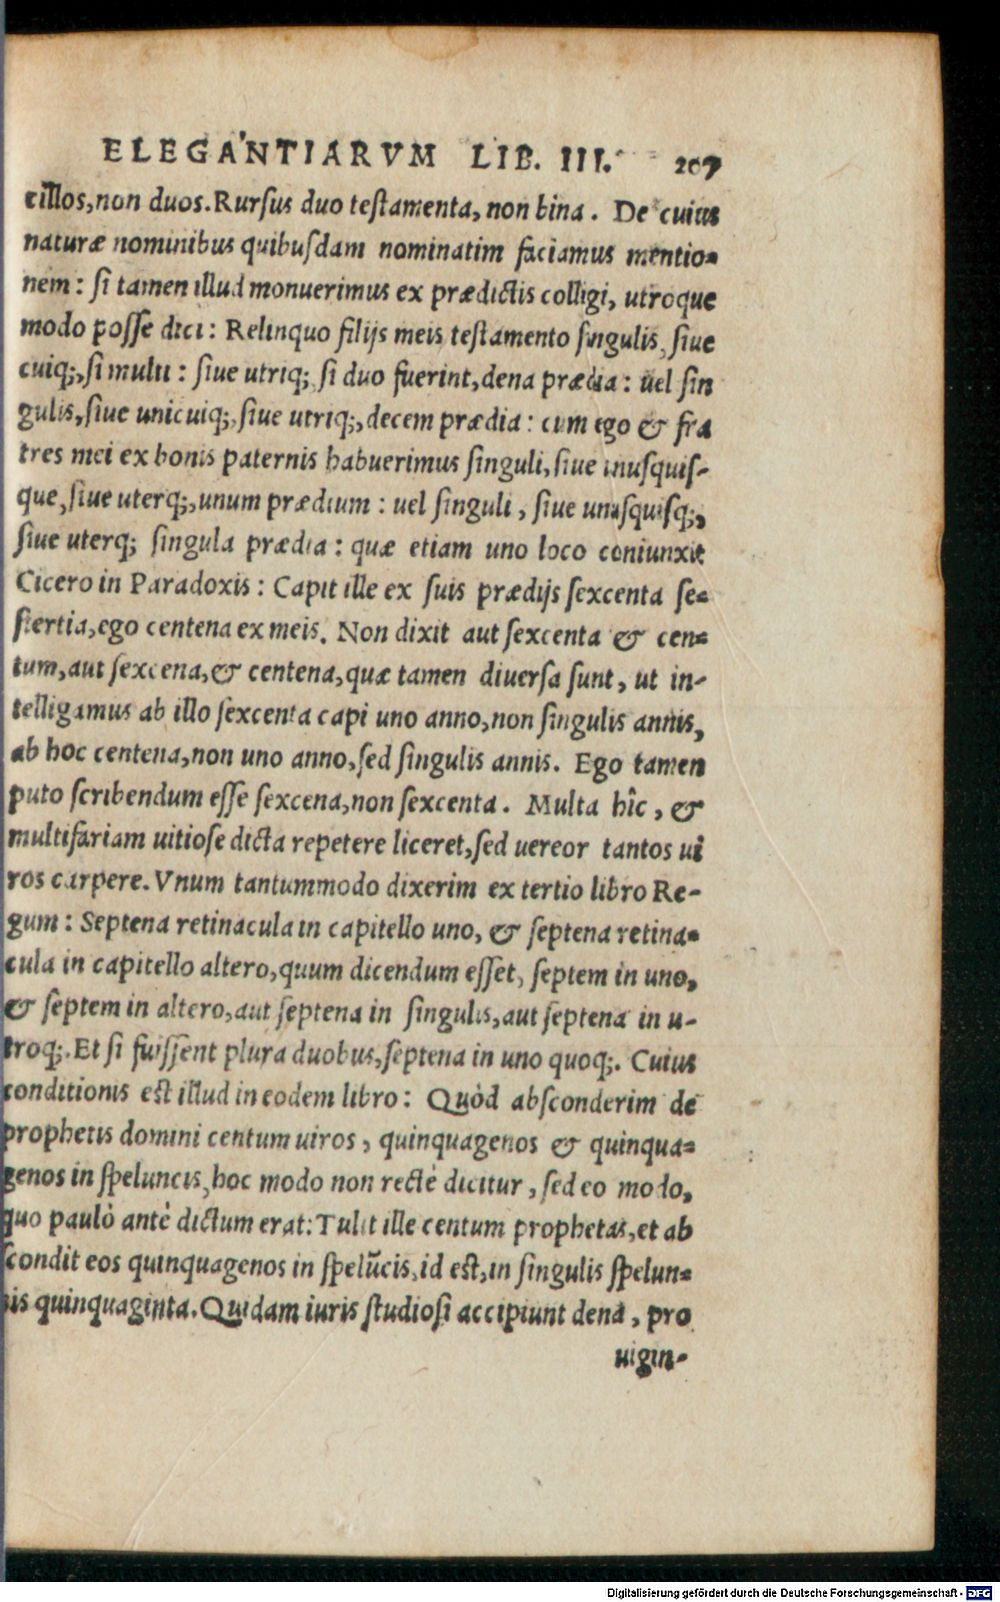 ELEGANTIARVM LIB. III. 207
cillos,non duos.Rursus duo testamenta, non bina. De cuius
naturæ nominibus quibusdam nominatim faciamus mentio-
nem: si tamen illud monuerimus ex prædictis colligi, utroque
modo posse dici: Relinquo filijs meis testamento singulis, siue
cuiq;, si multi: siue utriq;, si duo fuerint,dena prædia: uel sin
gulis,siue unicuiq;,siue utriq;,decem prædia: cum ego & fra
tres mei ex bonis paternis habuerimus singuli, siue unusquis-
que,siue uterq;,unum prædium: uel singuli, siue unusquisq;,
siue uterq; singula prædia: quæ etiam uno loco coniunxit
Cicero in Paradoxis: Capit ille ex suis prædijs sexcenta se-
stertia,ego centena ex meis. Non dixit aut sexcenta & cen-
tum,aut sexcena,& centena,quæ tamen diuersa sunt, ut in-
telligamus ab illo sexcenta capi uno anno,non singulis annis,
ab hoc centena,non uno anno,sed singulis annis. Ego tamen
puto scribendum esse sexcena,non sexcenta. Multa hîc, &
multifariam uitiose dicta repetere liceret,sed uereor tantos ui
ros carpere.Vnum tantummodo dixerim ex tertio libro Re-
gum: Septena retinacula in capitello uno, & septena retina-
cula in capitello altero,quum dicendum esset, septem in uno,
& septem in altero,aut septena in singulis,aut septena in u-
troq;.Et si fuissent plura duobus,septena in uno quoq;. Cuius
conditionis est illud in eodem libro: Quòd absconderim de
prophetis domini centum uiros, quinquagenos & quinqua-
genos in speluncis,hoc modo non rectè dicitur, sed eo modo,
quo paulò antè dictum erat:Tulit ille centum prophetas,et ab
scondit eos quinquagenos in spelūcis,id est,in singulis spelun-
is quinquaginta.Quidam iuris studiosi accipiunt dena, pro
uigin-
Digitalisierung gefördert durch die Deutsche Forschungsgemeinschaft - DFG